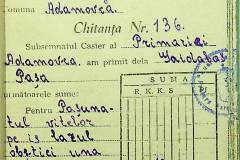 omuna Adamovca.
Chitanța Nr. 136.
Subsemnatul Casier al Primariei
Adamovca, am primit dela Gaidabas
Pașa
SUMA
R. K. K. S
numătoarele sume:
Pentru Pasuna-
tul vitelor
pe is lazul
obștici una